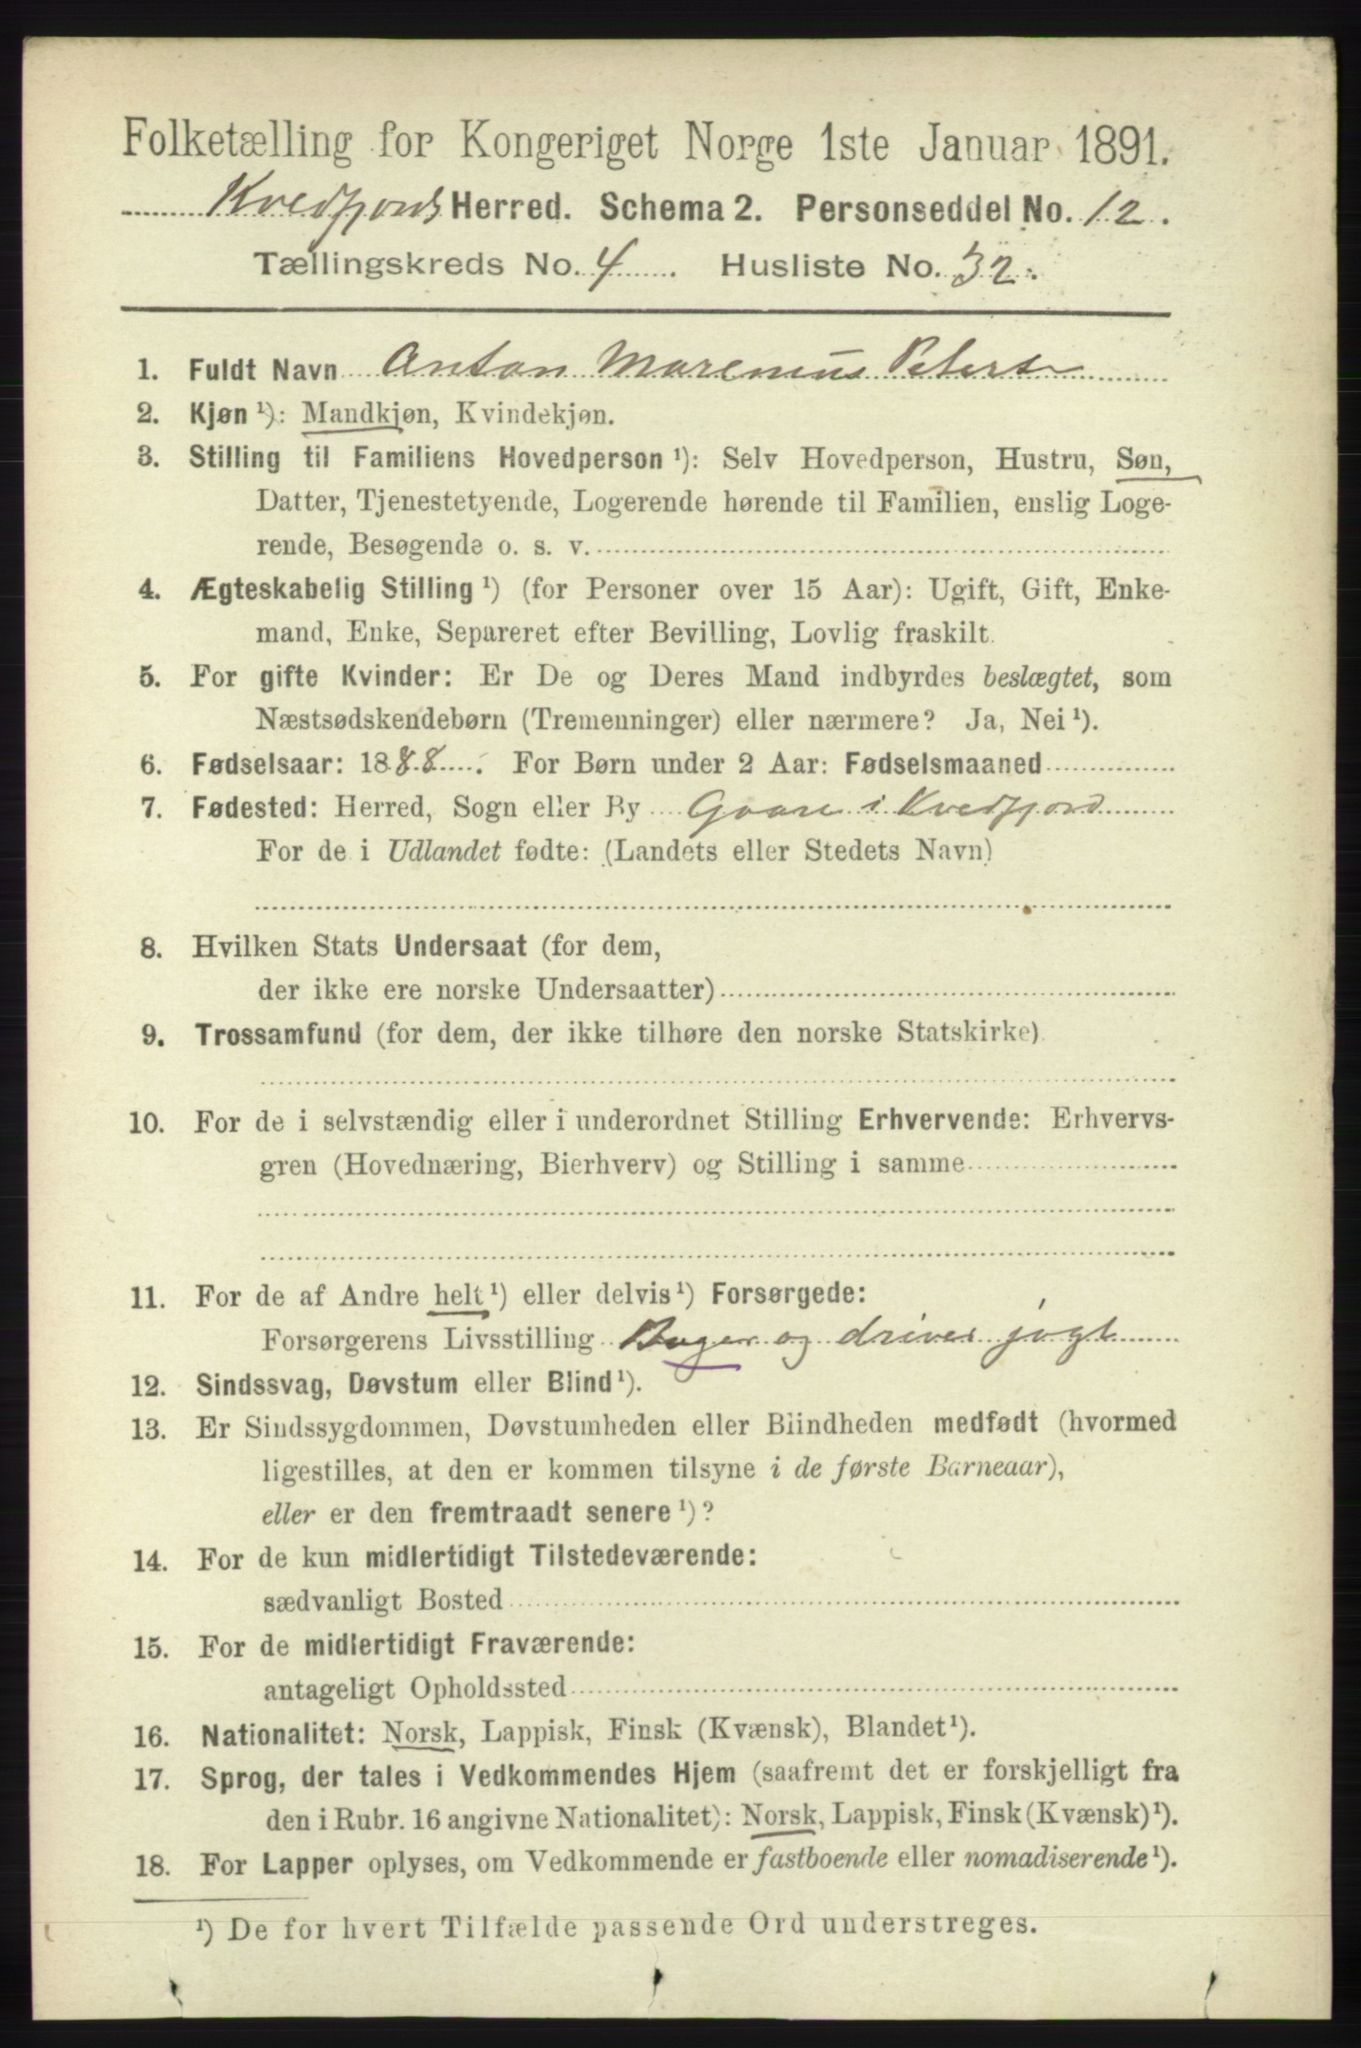 Folketælling for Kongeriget Norge 1ste Januar 1891.
Kvedfjords Herred. Schema 2. Personseddel No. 12.
Tællingskreds No. 4. Husliste No. 32.
1. Fuldt Navn Anton Marenius Peters
2. Kjøn ¹): Mandkjøn, Kvindekjøn.
3. Stilling til Familiens Hovedperson ¹): Selv Hovedperson, Hustru, Søn,
Datter, Tjenestetyende, Logerende hørende til Familien, enslig Loge-
rende, Besøgende o. s. v.
4. Ægteskabelig Stilling ¹) (for Personer over 15 Aar): Ugift, Gift, Enke-
mand, Enke, Separeret efter Bevilling, Lovlig fraskilt.
5. For gifte Kvinder: Er De og Deres Mand indbyrdes beslægtet, som
Næstsødskendebørn (Tremenninger) eller nærmere? Ja, Nei ¹).
6. Fødselsaar: 1888. For Børn under 2 Aar: Fødselsmaaned
7. Fødested: Herred, Sogn eller By Gaare i Kvedfjord
For de i Udlandet fødte: (Landets eller Stedets Navn)
8. Hvilken Stats Undersaat (for dem,
der ikke ere norske Undersaatter)
9. Trossamfund (for dem, der ikke tilhøre den norske Statskirke)
10. For de i selvstændig eller i underordnet Stilling Erhvervende: Erhvervs-
gren (Hovednæring, Bierhverv) og Stilling i samme
11. For de af Andre helt ¹) eller delvis ¹) Forsørgede:
Forsørgerens Livsstilling Bager og driver jagt
12. Sindssvag, Døvstum eller Blind ¹).
13. Er Sindssygdommen, Døvstumheden eller Blindheden medfødt (hvormed
ligestilles, at den er kommen tilsyne i de første Barneaar),
eller er den fremtraadt senere ¹)?
14. For de kun midlertidigt Tilstedeværende:
sædvanligt Bosted
15. For de midlertidigt Fraværende:
antageligt Opholdssted
16. Nationalitet: Norsk, Lappisk, Finsk (Kvænsk), Blandet ¹).
17. Sprog, der tales i Vedkommendes Hjem (saafremt det er forskjelligt fra
den i Rubr. 16 angivne Nationalitet): Norsk, Lappisk, Finsk (Kvænsk) ¹).
18. For Lapper oplyses, om Vedkommende er fastboende eller nomadiserende ¹).
¹) De for hvert Tilfælde passende Ord understreges.